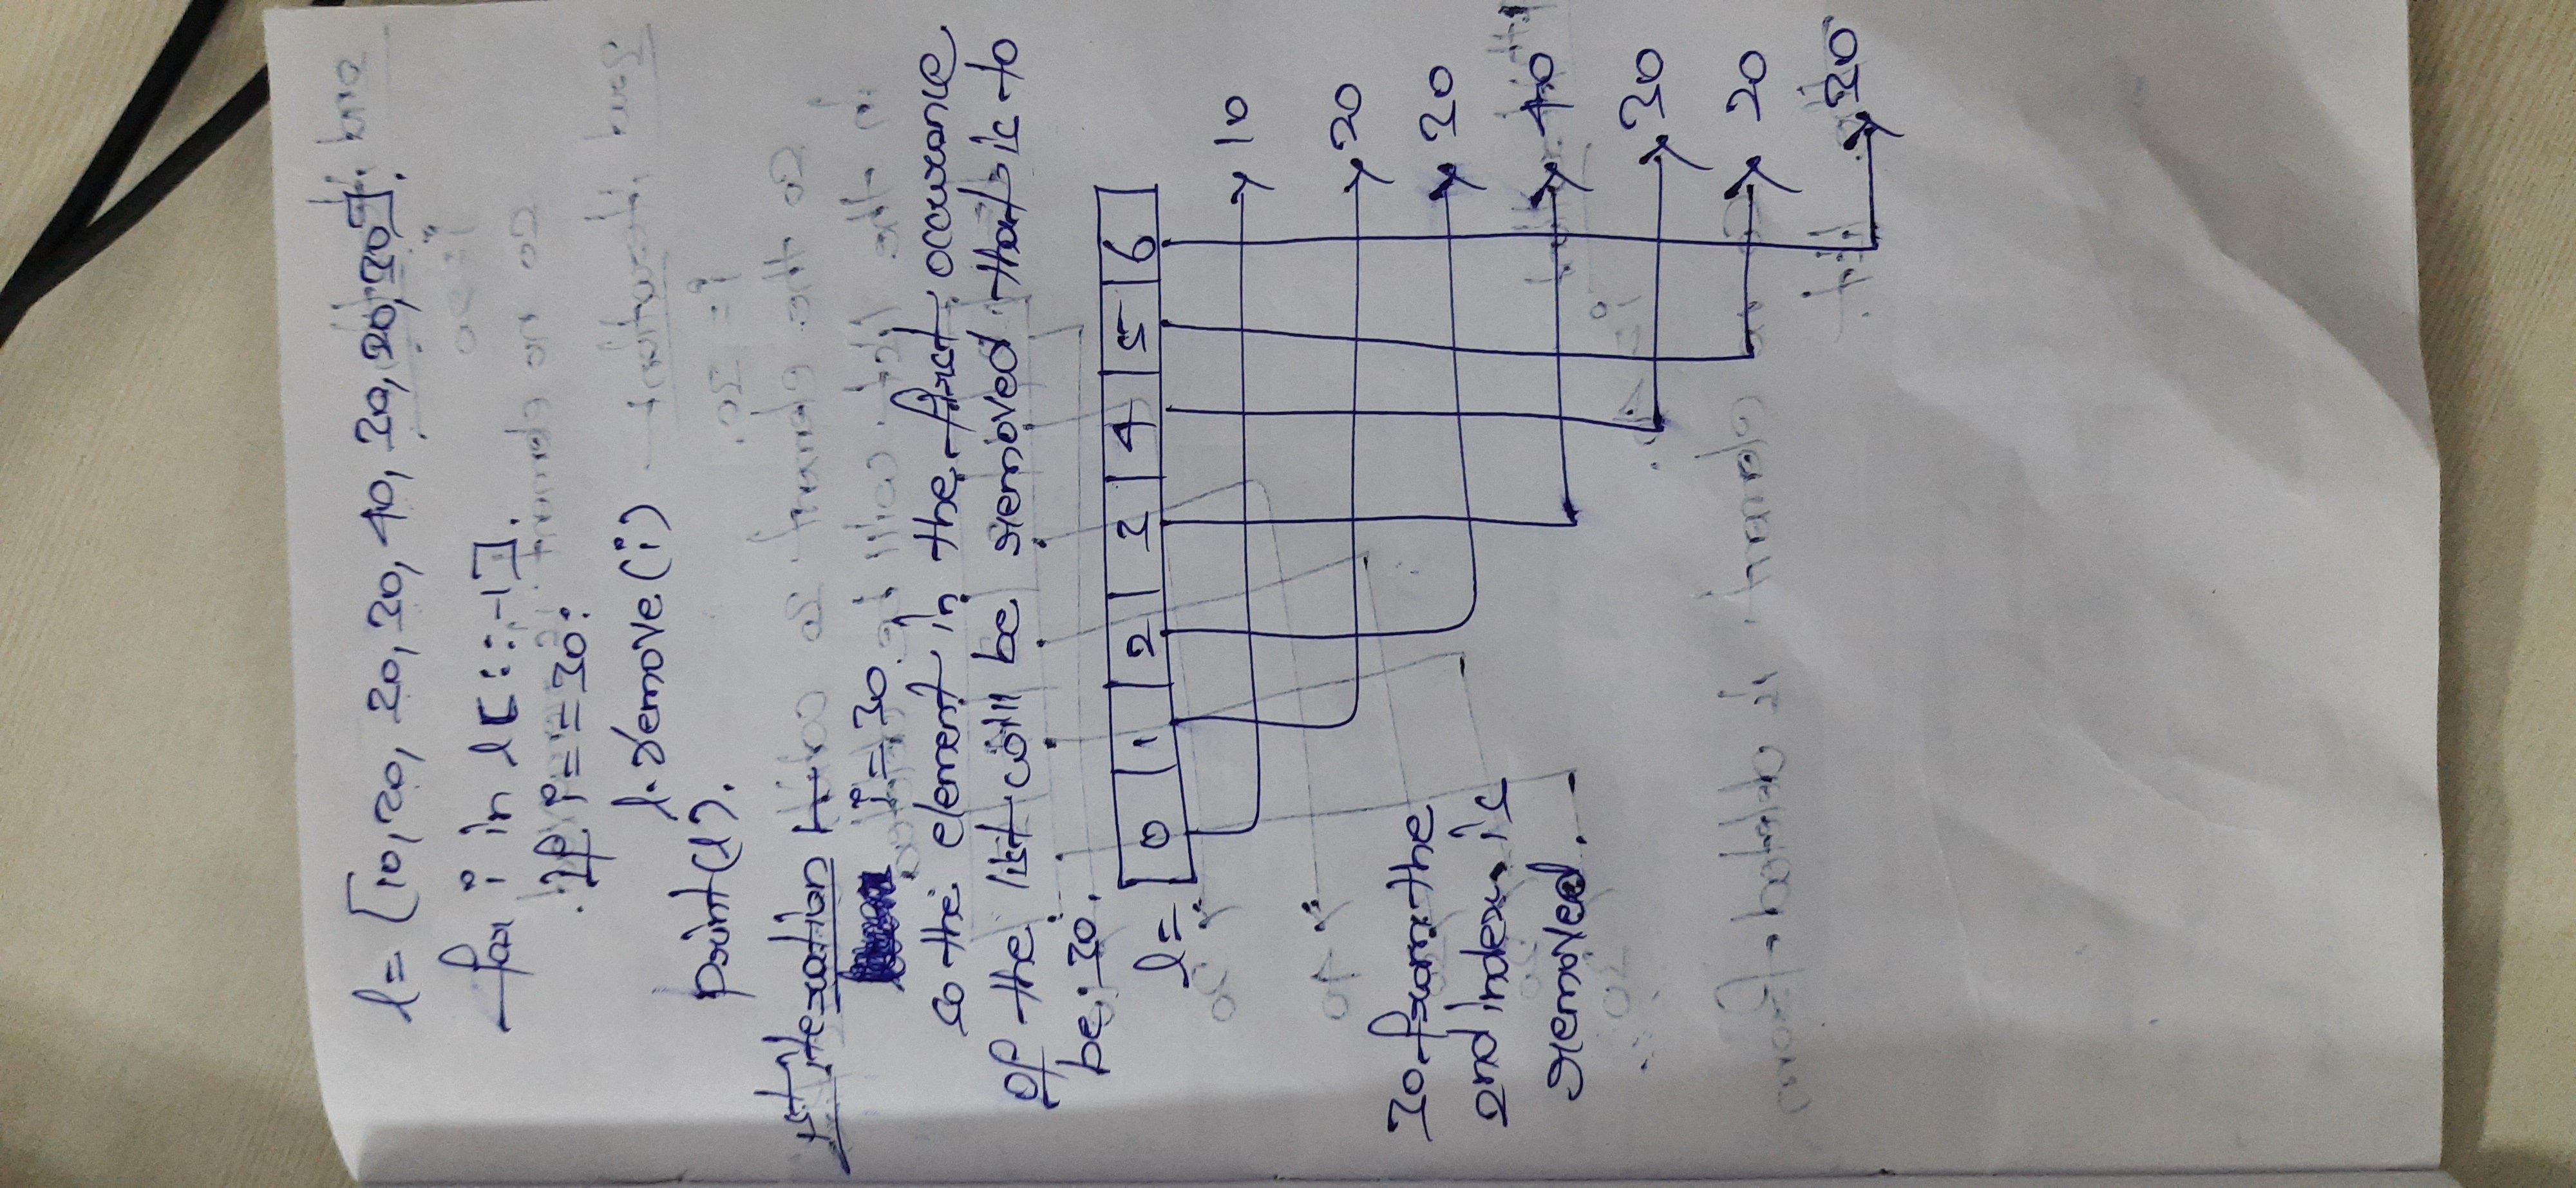 l= [10,20, 30,30,40, 30,20,30].
for i in l[::-1].
If i==30:
l.remove(i)
print(l).
1st iteration :-
i=30
so the element in the first occurance
of the list will be removed that is to
be 30.
l= 0 1 2 3 4 5 6
10
20
30 from the
30
2nd index is
40
removed.
30
20
30